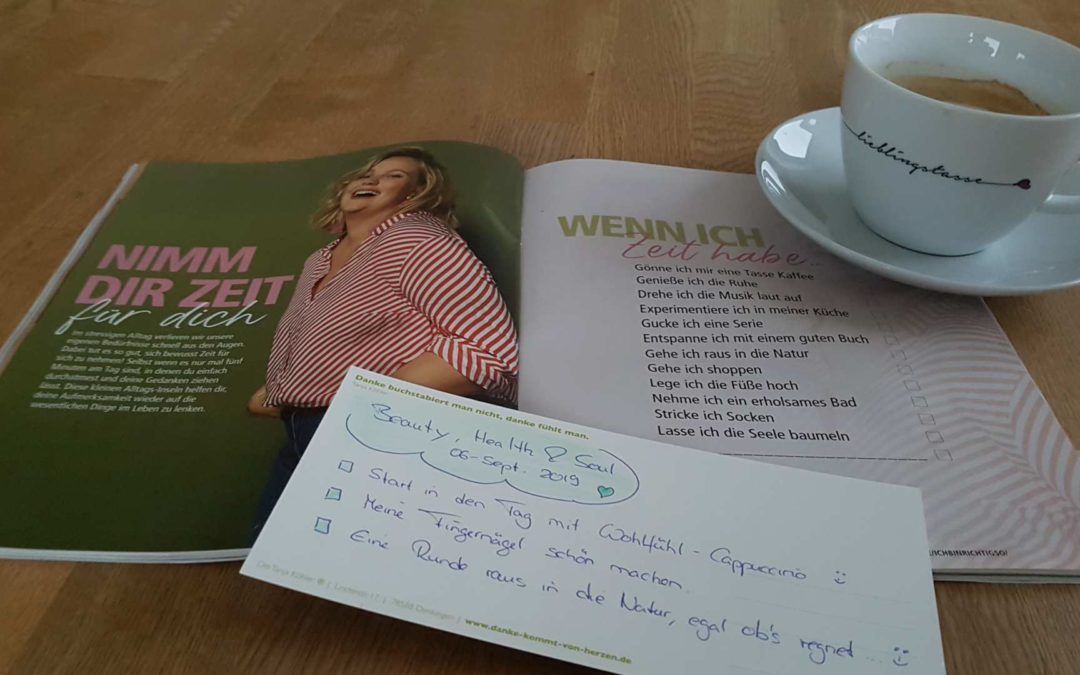 NIMM
DIR ZEIT
für dich
Im stressigen Alltag verlieren wir unsere
eigenen Bedürfnisse schnell aus den Augen.
Dabei tut es so gut, sich bewusst Zeit für
sich zu nehmen! Selbst wenn es nur mal fünf
Minuten am Tag sind, in denen du einfach
durchatmest und deine Gedanken ziehen
lässt. Diese kleinen Alltags-Inseln helfen dir,
deine Aufmerksamkeit wieder auf die
wesentlichen Dinge im Leben zu lenken.
WENN ICH
Zeit habe...
Gönne ich mir eine Tasse Kaffee
Genieße ich die Ruhe
Drehe ich die Musik laut auf
Experimentiere ich in meiner Küche
Gucke ich eine Serie
Entspanne ich mit einem guten Buch
Gehe ich raus in die Natur
Gehe ich shoppen
Lege ich die Füße hoch
Nehme ich ein erholsames Bad
Stricke ich Socken
Lasse ich die Seele baumeln
ICHBINRICHTIGSO/
lieblingstasse
Danke buchstabiert man nicht, danke fühlt man.
Tanja Köhler
Beauty, Health & Soul
06-Sept. 2019
Start in den Tag mit Wohlfühl-Cappuccino
Meine Fingernägel schön machen.
Eine Runde raus in die Natur, egal ob's regnet...
Tanja Köhler | 78588 Denkingen | www.danke-kommt-von-herzen.de